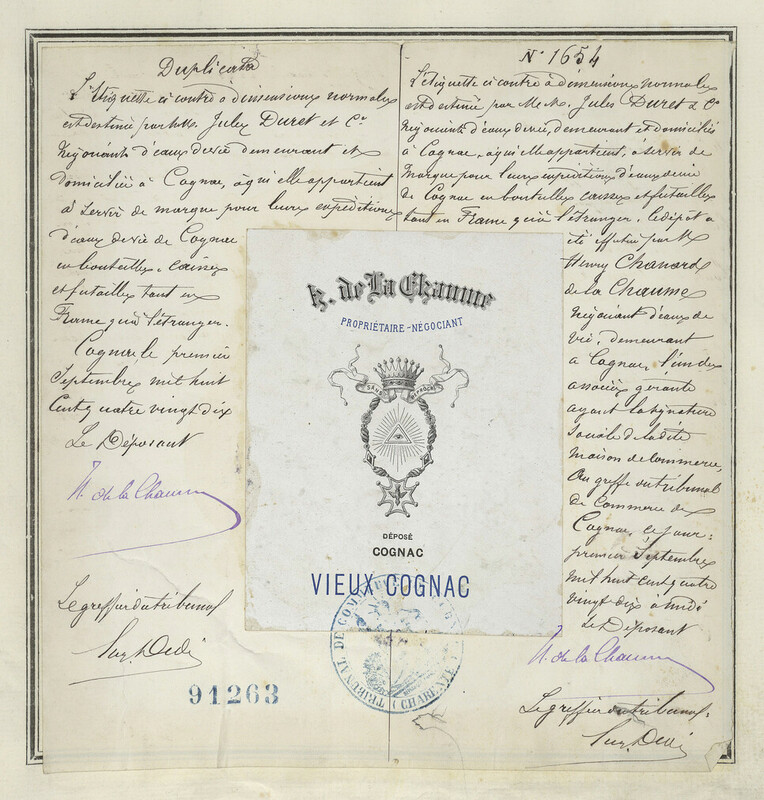 Duplicata
L'Etiquette ci contre à dimensions normales
est destinée par M.M. Jules Duret et Cie
Négociants d'eaux de vie demeurant et
domiciliés à Cognac, à qui elle appartient
à servir de marque pour leurs expéditions
d'eaux de vie de Cognac
en bouteilles, caisses
et futailles tant en
France qu'à l'étranger.
Cognac le premier
Septembre mil huit
Cent quatre vingt dix
Le Déposant
H. de la Chaume
Le greffier du tribunal
91263
N° 1654
L'étiquette ci contre à dimensions normales
est destinée par M.M. Jules Duret & Cie
Négociants d'eaux de vie, demeurant et domiciliés
à Cognac, à qui elle appartient, à servir de
marque pour leurs expéditions d'eaux de vie
de Cognac en bouteilles caisses et futailles
tant en France qu'à l'étranger. Le dépôt a
été effectué par M
Henry Chanard
de la Chaume
Négociant d'eaux de
vie, demeurant
à Cognac, l'un des
associés gérants
ayant la signature
sociale de la dite
maison de commerce,
Au greffe du tribunal
de Commerce de
Cognac, ce jour
premier Septembre
mil huit cent quatre
vingt dix à midi
Le Déposant
H. de la Chaume
Le greffier du tribunal
H. de La Chaume
PROPRIÉTAIRE-NÉGOCIANT
SANS REPROCHE
DÉPOSÉ
COGNAC
VIEUX COGNAC
TRIBUNAL DE COMMERCE
(CHARENTE)